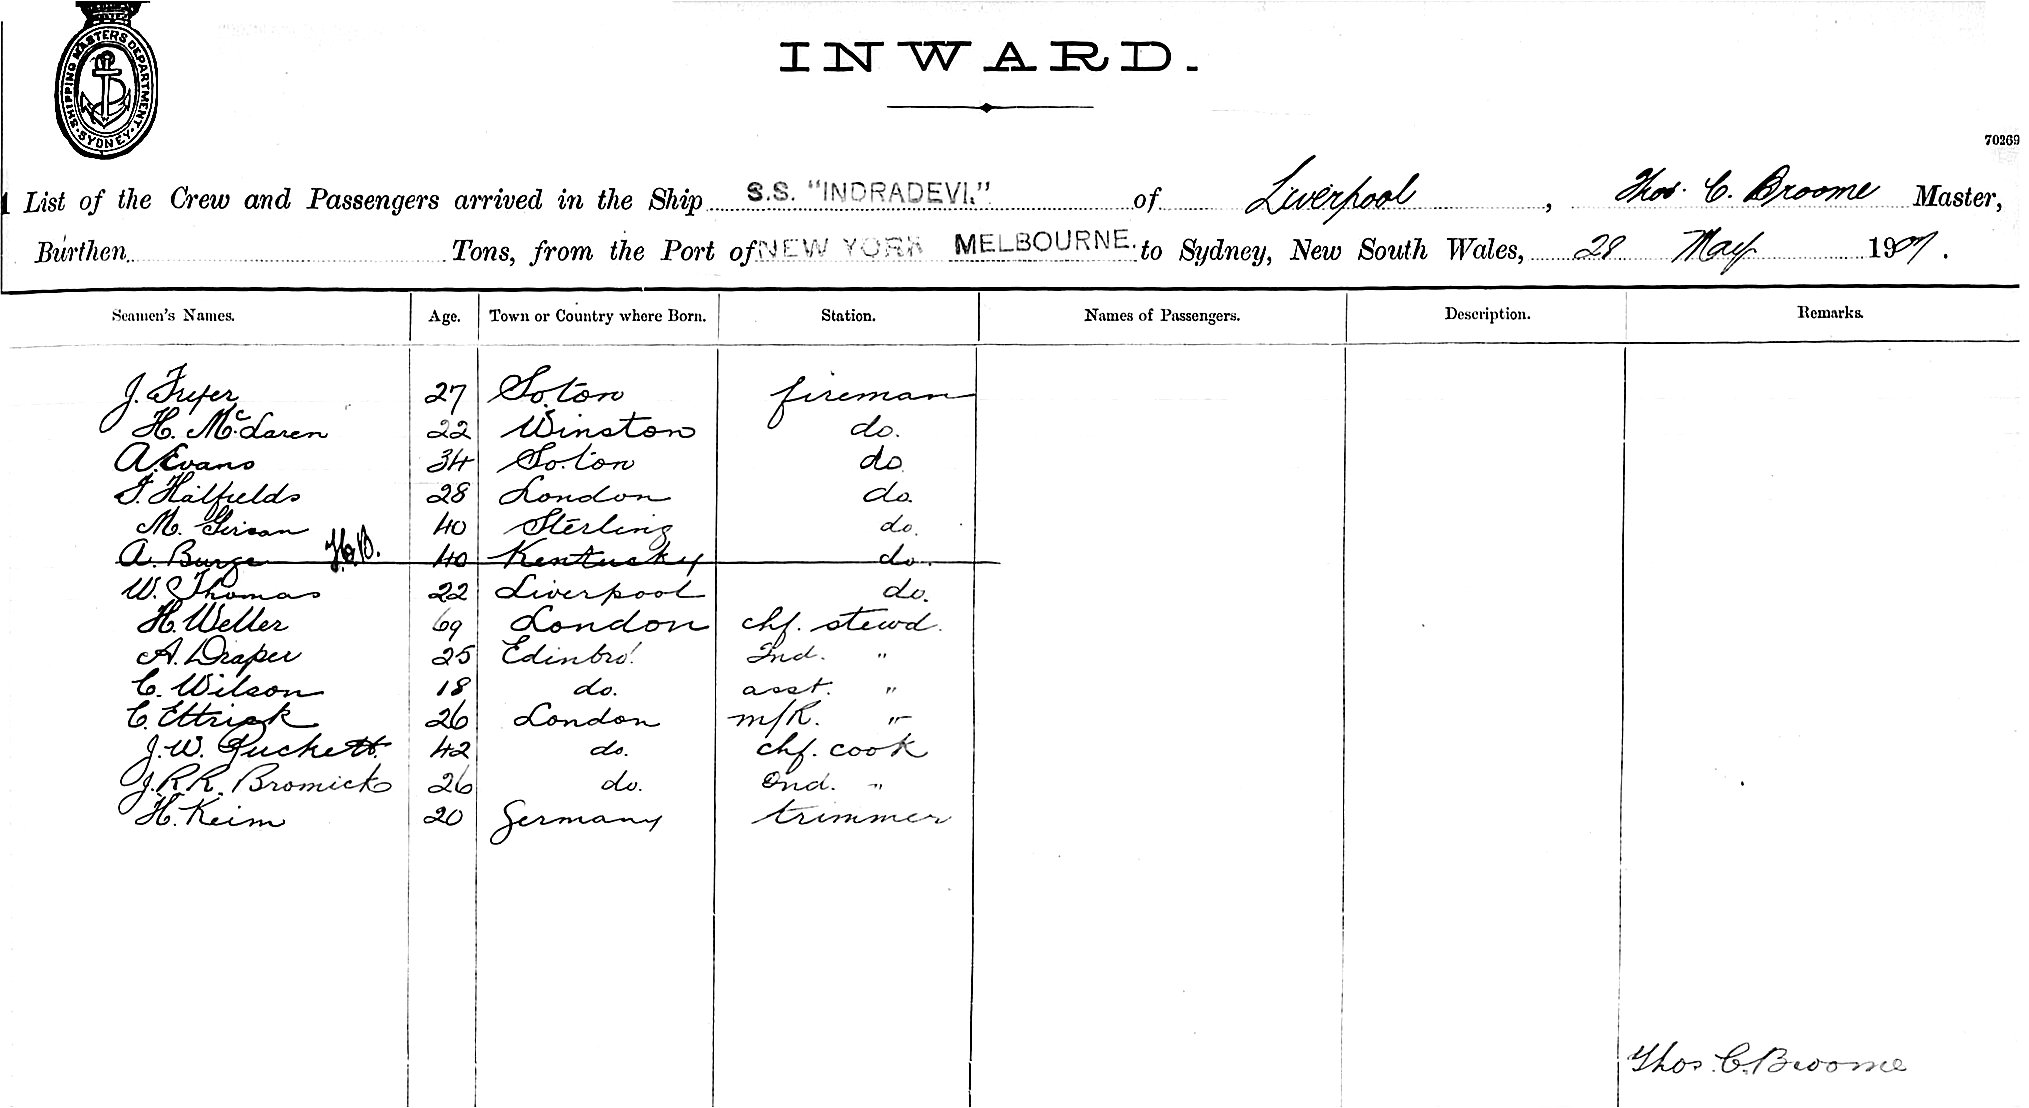 SHIPPING MASTERS DEPARTMENT
SYDNEY
INWARD.
70269
List of the Crew and Passengers arrived in the Ship S.S. "INDRADEVI." of Liverpool, Thos. C. Broome Master,
Burthen Tons, from the Port of NEW YORK MELBOURNE. to Sydney, New South Wales, 28 May 1907.
Seamen's Names. Age. Town or Country where Born. Station. Names of Passengers. Description. Remarks.
J. Fryer 27 So.ton fireman
H. McLaren 22 Winston do.
A. Evans 34 So.ton do
J. Hatfields 28 London do.
M. 40 Sterling do.
A. Burge 40 Kentucky do.
W. Thomas 22 Liverpool do.
H. Weller 69 London chf. stewd.
A. Draper 25 Edinbro'. 2nd. "
C. Wilson 18 do. asst. "
C. Ettrick 26 London m/R. "
J. W. Puckett. 42 do. chf. cook
J. R. R. Bromick 26 do. 2nd. "
H. Keim 20 Germany trimmer
Thos. C. Broome